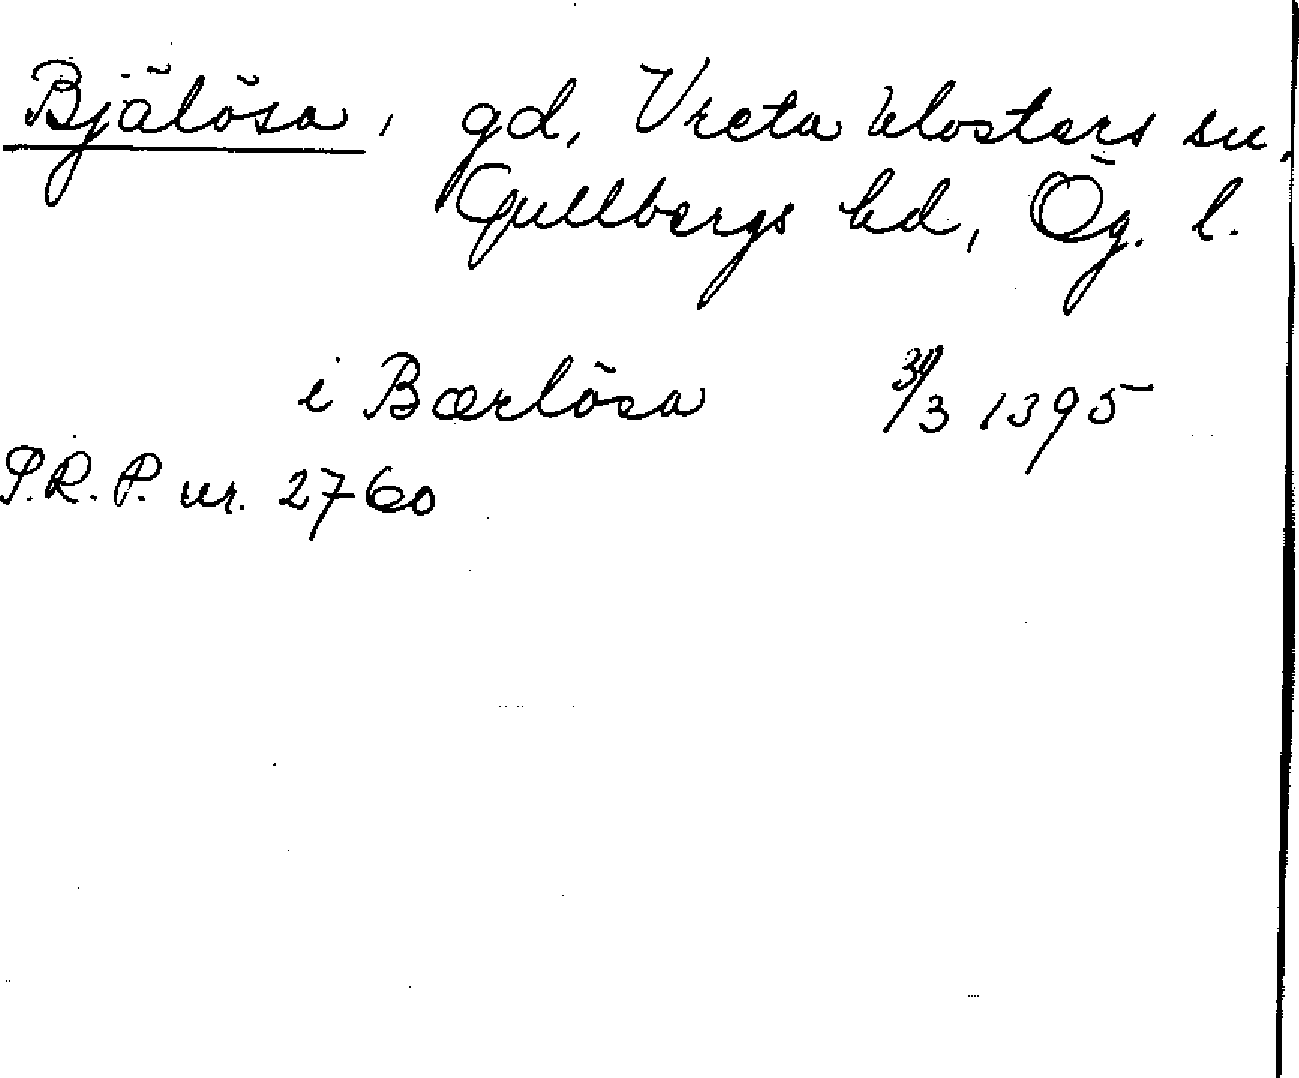 Bjälösa, gd, Vreta klosters sn,
Gullbergs hd, Ög. l.
i Bærlösa 3/3 1395
P.R.P. nr. 2760